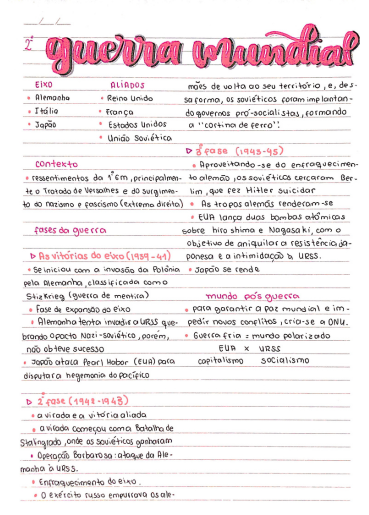 2ª guerra mundial
EIXO
• Alemanha
• Itália
• Japão
ALIADOS
• Reino Unido
• França
• Estados Unidos
• União Soviética
contexto
• ressentimentos da 1ª GM, principalmen-
te o Tratado de Versalhes e do surgimen-
to do nazismo e fascismo (extrema direita)
fases da guerra
▷ As vitórias do eixo (1939-41)
• Se iniciou com a invasão da Polônia
pela Alemanha, classificada como a
Sitzkrieg (guerra de mentira)
• Fase de expansão do eixo
• Alemanha tenta invadir a URSS que-
brando o pacto Nazi-soviético, porém,
não obteve sucesso
• Japão ataca Pearl Habor (EUA) para
disputar a hegemonia do pacífico
▷ 2ª fase (1942-1943)
• a virada e a vitória aliada
• a virada começou com a Batalha de
Stalingrado, onde os soviéticos ganharam
• Operação Barbarosa: ataque da Ale-
manha à URSS.
• Enfraquecimento do eixo.
• O exército russo empurrava os ale-
mães de volta ao seu território, e, des-
sa forma, os soviéticos foram implantan-
do governos pró-socialistas, formando
a "cortina de ferro".
▷ 3ª fase (1943-45)
• Aproveitando-se do enfraquecimen-
to alemão, os soviéticos cercaram Ber-
lim, que fez Hitler suicidar
• As tropas alemãs renderam-se
• EUA lança duas bombas atômicas
sobre hiroshima e Nagasaki, com o
objetivo de aniquilar a resistência ja-
ponesa e a intimidação à URSS.
• Japão se rende
mundo pós guerra
• para garantir a paz mundial e im-
pedir novos conflitos, cria-se a ONU.
• Guerra fria = mundo polarizado
EUA x URSS
capitalismo socialismo